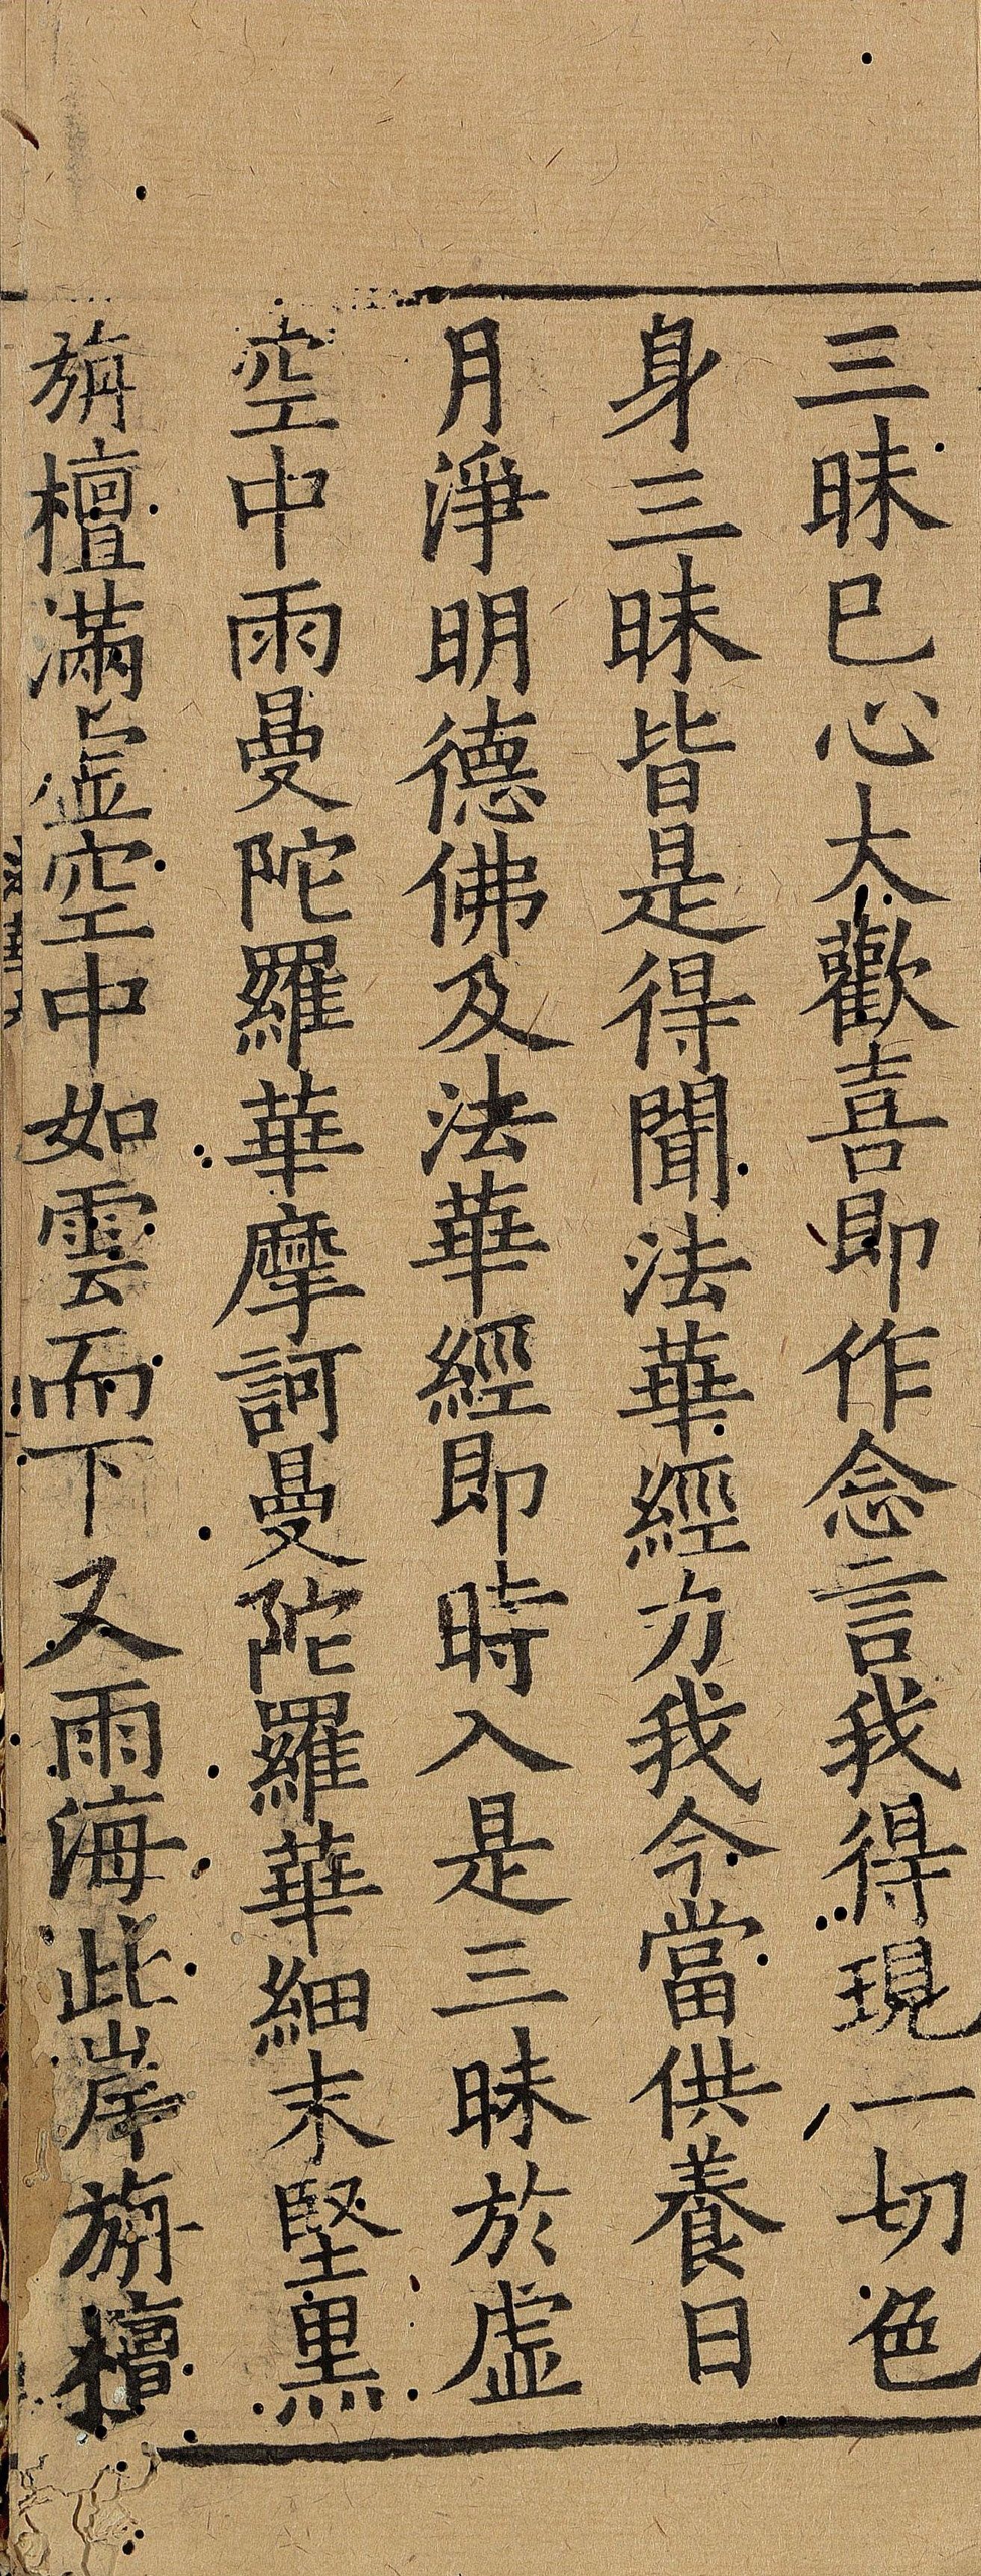 三昧已心大歡喜即作念言我得現一切色
身三昧皆是得聞法華經力我今當供養日
月淨明德佛及法華經即時入是三昧於虛
空中雨曼陀羅華摩訶曼陀羅華細末堅黑
旃檀滿虛空中如雲而下又雨海此岸旃檀